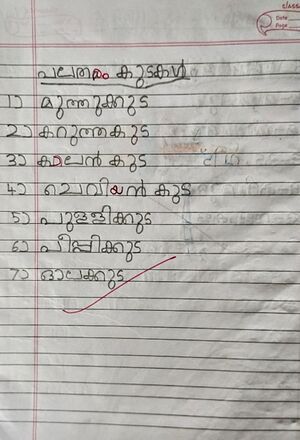 class
Date
Page
പലതരം കുടകൾ
1) മുത്തുക്കുട
2) കറുത്തകുട
3) കാലൻ കുട
4) ചെവിയൻ കുട
5) പുള്ളിക്കുട
6) പീപ്പിക്കുട
7) ഓലക്കുട